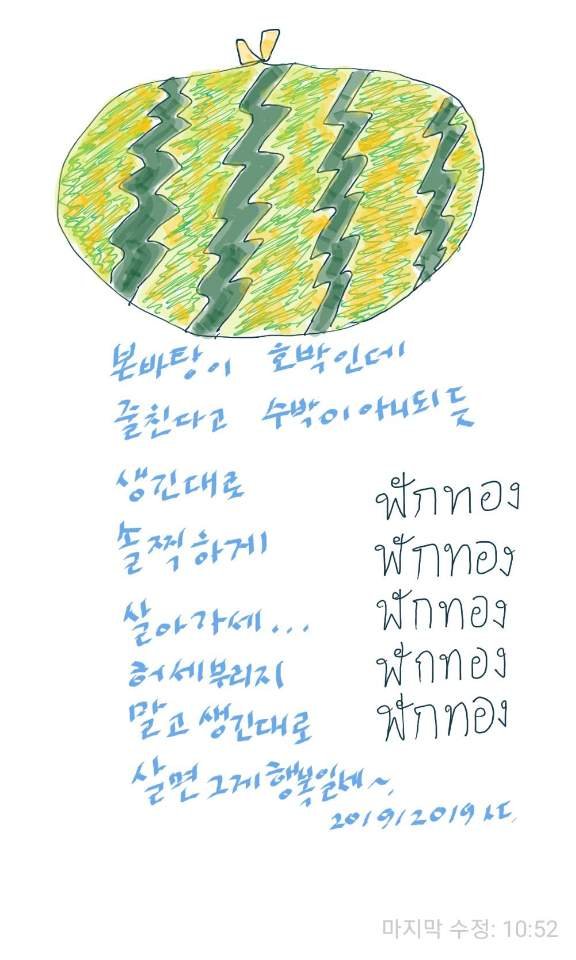 본바탕이 호박인데
줄친다고 수박이아니되듯
생긴대로
솔찍하게
살아가세...
허세부리지
말고 생긴대로
살면 그게 행복일세~
ฟักทอง
ฟักทอง
ฟักทอง
ฟักทอง
ฟักทอง
마지막 수정: 10:52